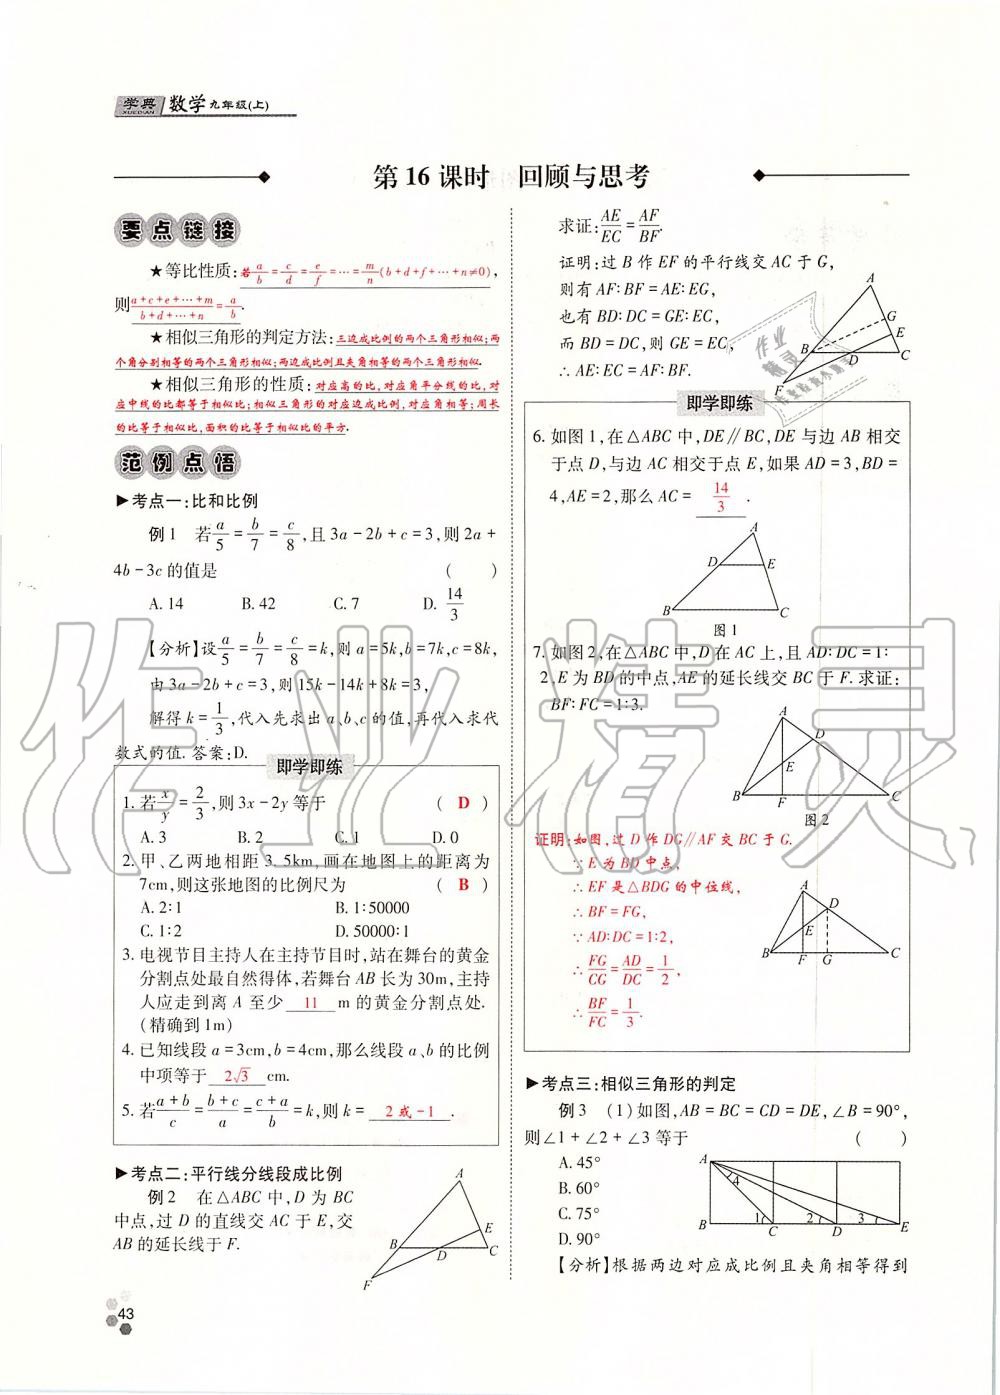 学典 数学九年级(上)
XUEDIAN
第16课时 回顾与思考
要点链接
★等比性质:若a/b=c/d=e/f=…=m/n(b+d+f+…+n≠0),
则(a+c+e+…+m)/(b+d+…+n)=a/b.
★相似三角形的判定方法:三边成比例的两个三角形相似;两
个角分别相等的两个三角形相似;两边成比例且夹角相等的两个三角形相似.
★相似三角形的性质:对应高的比,对应角平分线的比,对
应中线的比都等于相似比;相似三角形的对应边成比例,对应角相等;周长
的比等于相似比,面积的比等于相似比的平方.
范例点悟
▶考点一:比和比例
例1 若a/5=b/7=c/8,且3a-2b+c=3,则2a+
4b-3c的值是 ( )
A.14 B.42 C.7 D.14/3
【分析】设a/5=b/7=c/8=k,则a=5k,b=7k,c=8k,
由3a-2b+c=3,则15k-14k+8k=3,
解得k=1/3,代入先求出a、b、c的值,再代入求代
数式的值.答案:D.
即学即练
1.若x/y=2/3,则3x-2y等于 ( D )
A.3 B.2 C.1 D.0
2.甲、乙两地相距3.5km,画在地图上的距离为
7cm,则这张地图的比例尺为 ( B )
A.2∶1 B.1∶50000
C.1∶2 D.50000∶1
3.电视节目主持人在主持节目时,站在舞台的黄金
分割点处最自然得体,若舞台AB长为30m,主持
人应走到离A至少 11 m的黄金分割点处.
(精确到1m)
4.已知线段a=3cm,b=4cm,那么线段a、b的比例
中项等于 2√3 cm.
5.若(a+b)/c=(b+c)/a=(c+a)/b=k,则k= 2或-1 .
▶考点二:平行线分线段成比例
例2 在△ABC中,D为BC
中点,过D的直线交AC于E,交
AB的延长线于F.
A
E
B
D
C
F
43
求证:AE/EC=AF/BF.
证明:过B作EF的平行线交AC于G,
则有AF∶BF=AE∶EG,
也有BD∶DC=GE∶EC,
而BD=DC,则GE=EC,
∴AE∶EC=AF∶BF.
A
G
E
B
C
D
F
即学即练
6.如图1,在△ABC中,DE∥BC,DE与边AB相交
于点D,与边AC相交于点E,如果AD=3,BD=
4,AE=2,那么AC= 14/3 .
A
D
E
B
C
图1
7.如图2,在△ABC中,D在AC上,且AD∶DC=1∶
2,E为BD的中点,AE的延长线交BC于F.求证:
BF∶FC=1∶3.
A
D
E
B
F
C
图2
证明:如图,过D作DG∥AF交BC于G.
∵E为BD中点,
∴EF是△BDG的中位线,
∴BF=FG,
∵AD∶DC=1∶2,
∴FG/CG=AD/DC=1/2,
∴BF/FC=1/3.
A
D
E
B
F
G
C
▶考点三:相似三角形的判定
例3 (1)如图,AB=BC=CD=DE,∠B=90°,
则∠1+∠2+∠3等于 ( )
A.45°
B.60°
C.75°
D.90°
A
4
1
2
3
B
C
D
E
【分析】根据两边对应成比例且夹角相等得到
作业精灵